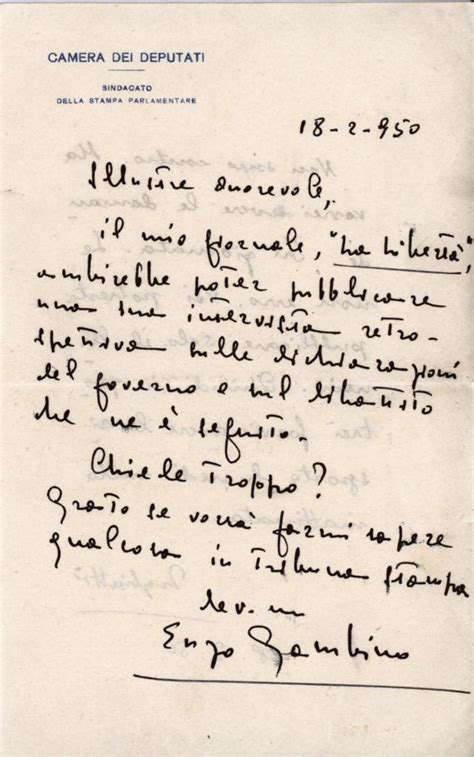 CAMERA DEI DEPUTATI
SINDACATO
DELLA STAMPA PARLAMENTARE
18-2-950
Illustre onorevole,
il mio giornale, "La Libertà",
ambirebbe poter pubblicare
una sua intervista retro-
spettiva sulle dichiarazioni
del governo e sul dibattito
che ne è seguito.
Chiedo troppo?
Grato se vorrà farmi sapere
qualcosa in tribuna stampa
dev.mo
Enzo Gambino